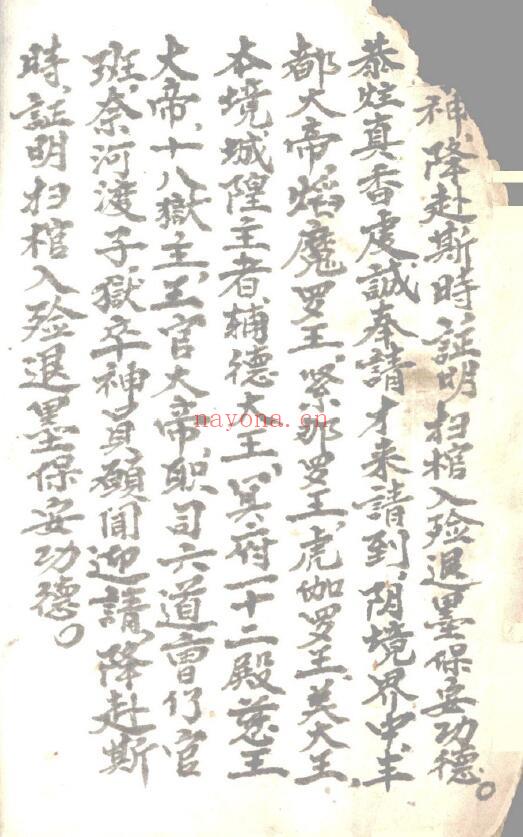 神、降赴斯時、証明扫棺入殓退墨保安功德。
恭炷真香虔誠奉請才来請到、阴境界中、丰
都大帝熖魔罗王、緊那罗王、虎伽罗王、美大王、
本境、城隍主者、辅德大王、冥府一十二殿慈王
大帝、十八獄主、王官大帝、职司六道曹仃官
班、奈河渡子、獄卒神員、願聞迎請、降赴斯
時、証明扫棺入殓退墨保安功德。
nayona.cn